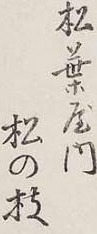 松葉屋門
松の枝